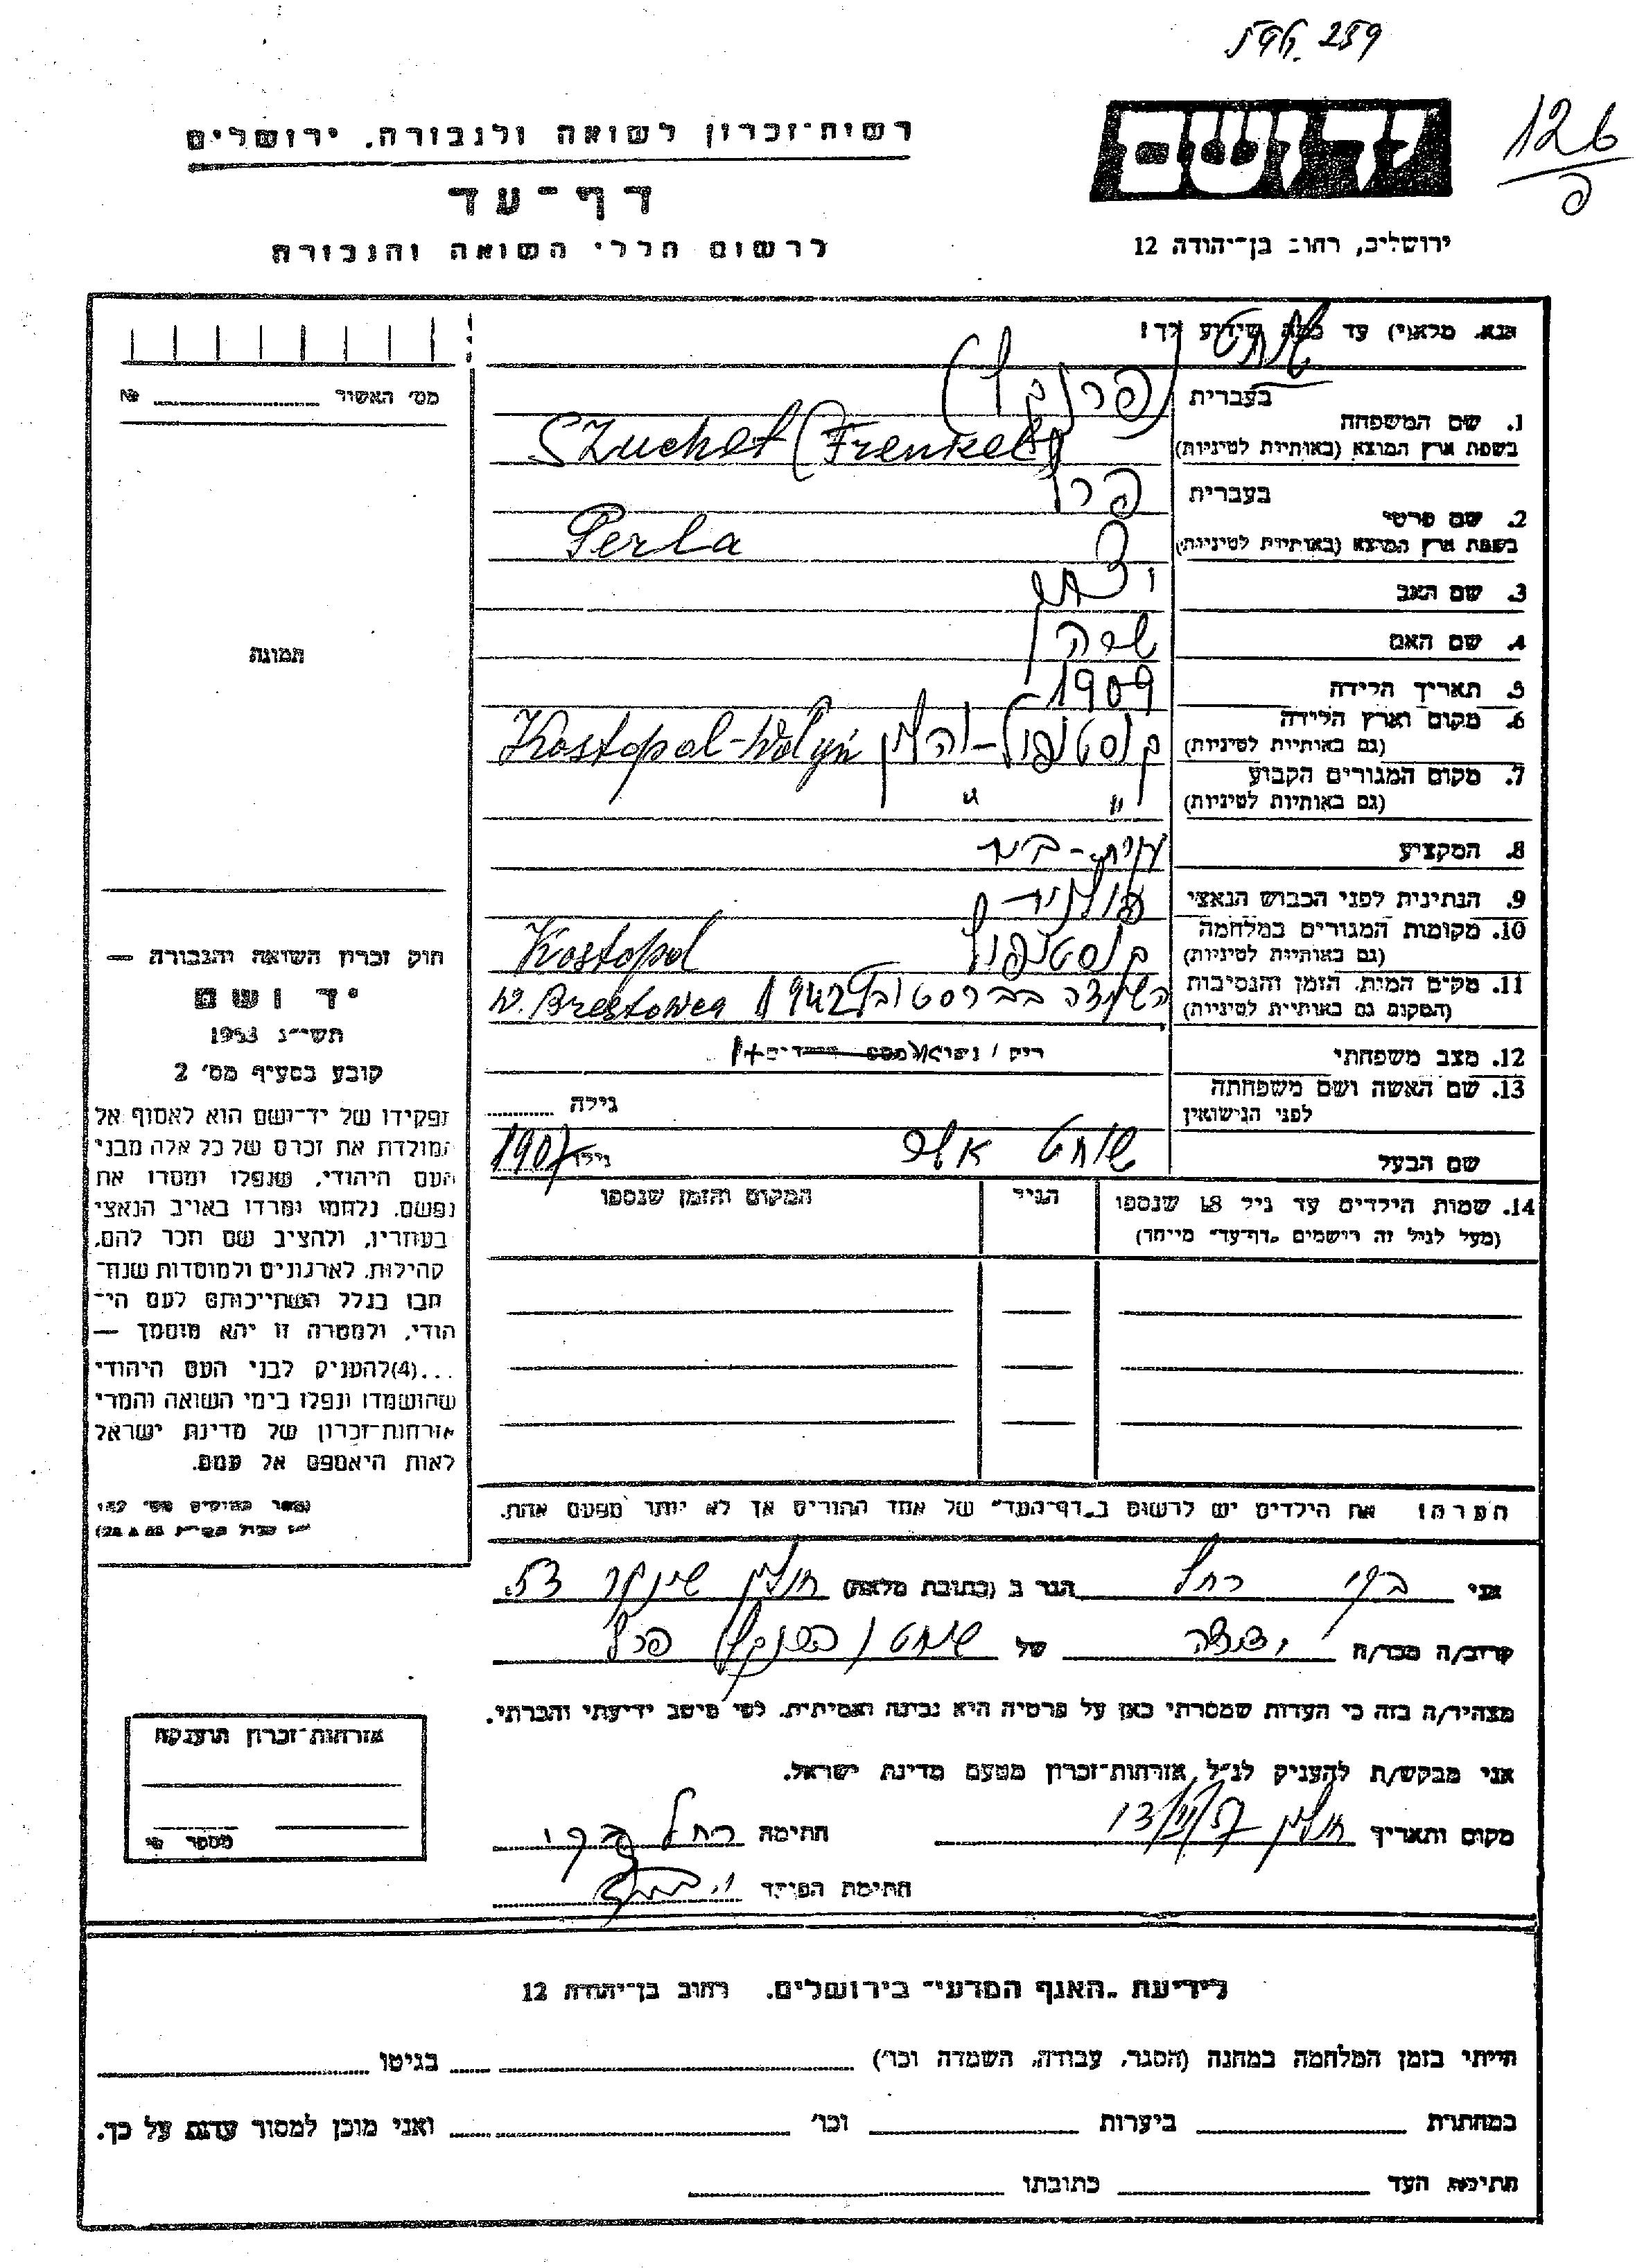 259
126
יד ושם
רשות־זכרון לשואה ולגבורה, ירושלים
דף־עד
לרשום חללי השואה והגבורה
ירושלים, רחוב בן־יהודה 12
נא מלא(י) עד כמה שידוע לך!
מס׳ האשור №
תמונה
שוחט
1. שם המשפחה
בעברית (פרנקל)
בשפת ארץ המוצא (באותיות לטיניות) Szuchet (Frenkel)
2. שם פרטי
בעברית פרל
בשפת ארץ המוצא (באותיות לטיניות) Perla
3. שם האב
4. שם האם שרה
5. תאריך הלידה 1909
6. מקום וארץ הלידה
(גם באותיות לטיניות) קוסטופול-ווהלין Kostopol-Wołyń
7. מקום המגורים הקבוע
(גם באותיות לטיניות) " "
8. המקצוע עקרת-בית
9. הנתינות לפני הכבוש הנאצי פולנית
10. מקומות המגורים במלחמה
(גם באותיות לטיניות) קוסטופול Kostopol
11. מקום המות, הזמן והנסיבות
(המקום גם באותיות לטיניות) 1942 W. Brestowea
12. מצב משפחתי רוק / נשוי / מספר הילדים
13. שם האשה ושם משפחתה
לפני הנישואין גילה
שם הבעל שוחט גילו 1907
14. שמות הילדים עד גיל 18 שנספו
(מעל לגיל זה רושמים „דף־עד״ מיוחד)
הגיל
המקום והזמן שנספו
חוק זכרון השואה והגבורה —
יד ושם
תשי״ג 1953
קובע בסעיף מס׳ 2
תפקידו של יד־ושם הוא לאסוף אל
המולדת את זכרם של כל אלה מבני
העם היהודי, שנפלו ומסרו את
נפשם, נלחמו ומרדו באויב הנאצי
בעוזריו, ולהציב שם וזכר להם,
לקהילות, לארגונים ולמוסדות שנח־
רבו בגלל השתייכותם לעם היה־
ודי, ולמטרה זו יהא מוסמך —
...(4)להעניק לבני העם היהודי
שהושמדו ונפלו בימי השואה והמרי
אזרחות־זכרון של מדינת ישראל
לאות היאספם אל עמם.
הערה! את הילדים יש לרשום ב„דף־העד״ של אחד ההורים אך לא יותר מפעם אחת.
אני רחל הגר ב (כתובת מלאה) חולון
קרוב/ה מכר/ה של שוחט (פרנקל) פרל
מצהיר/ה בזה כי העדות שמסרתי כאן על פרטיה היא נכונה ואמיתית, לפי מיטב ידיעתי והכרתי.
אני מבקש/ת להעניק לנ״ל אזרחות־זכרון מטעם מדינת ישראל.
מקום ותאריך חולון חתימה רחל
חתימת הפוקד
אזרחות־זכרון תוענקה
מספר №
לידיעת „האגף המדעי״ בירושלים, רחוב בן־יהודה 12
הייתי בזמן המלחמה במחנה (הסגר, עבודה, השמדה וכו׳) בגיטו
במחתרת ביערות וכו׳ ואני מוכן למסור עדות על כך.
חתימת העד כתובתו